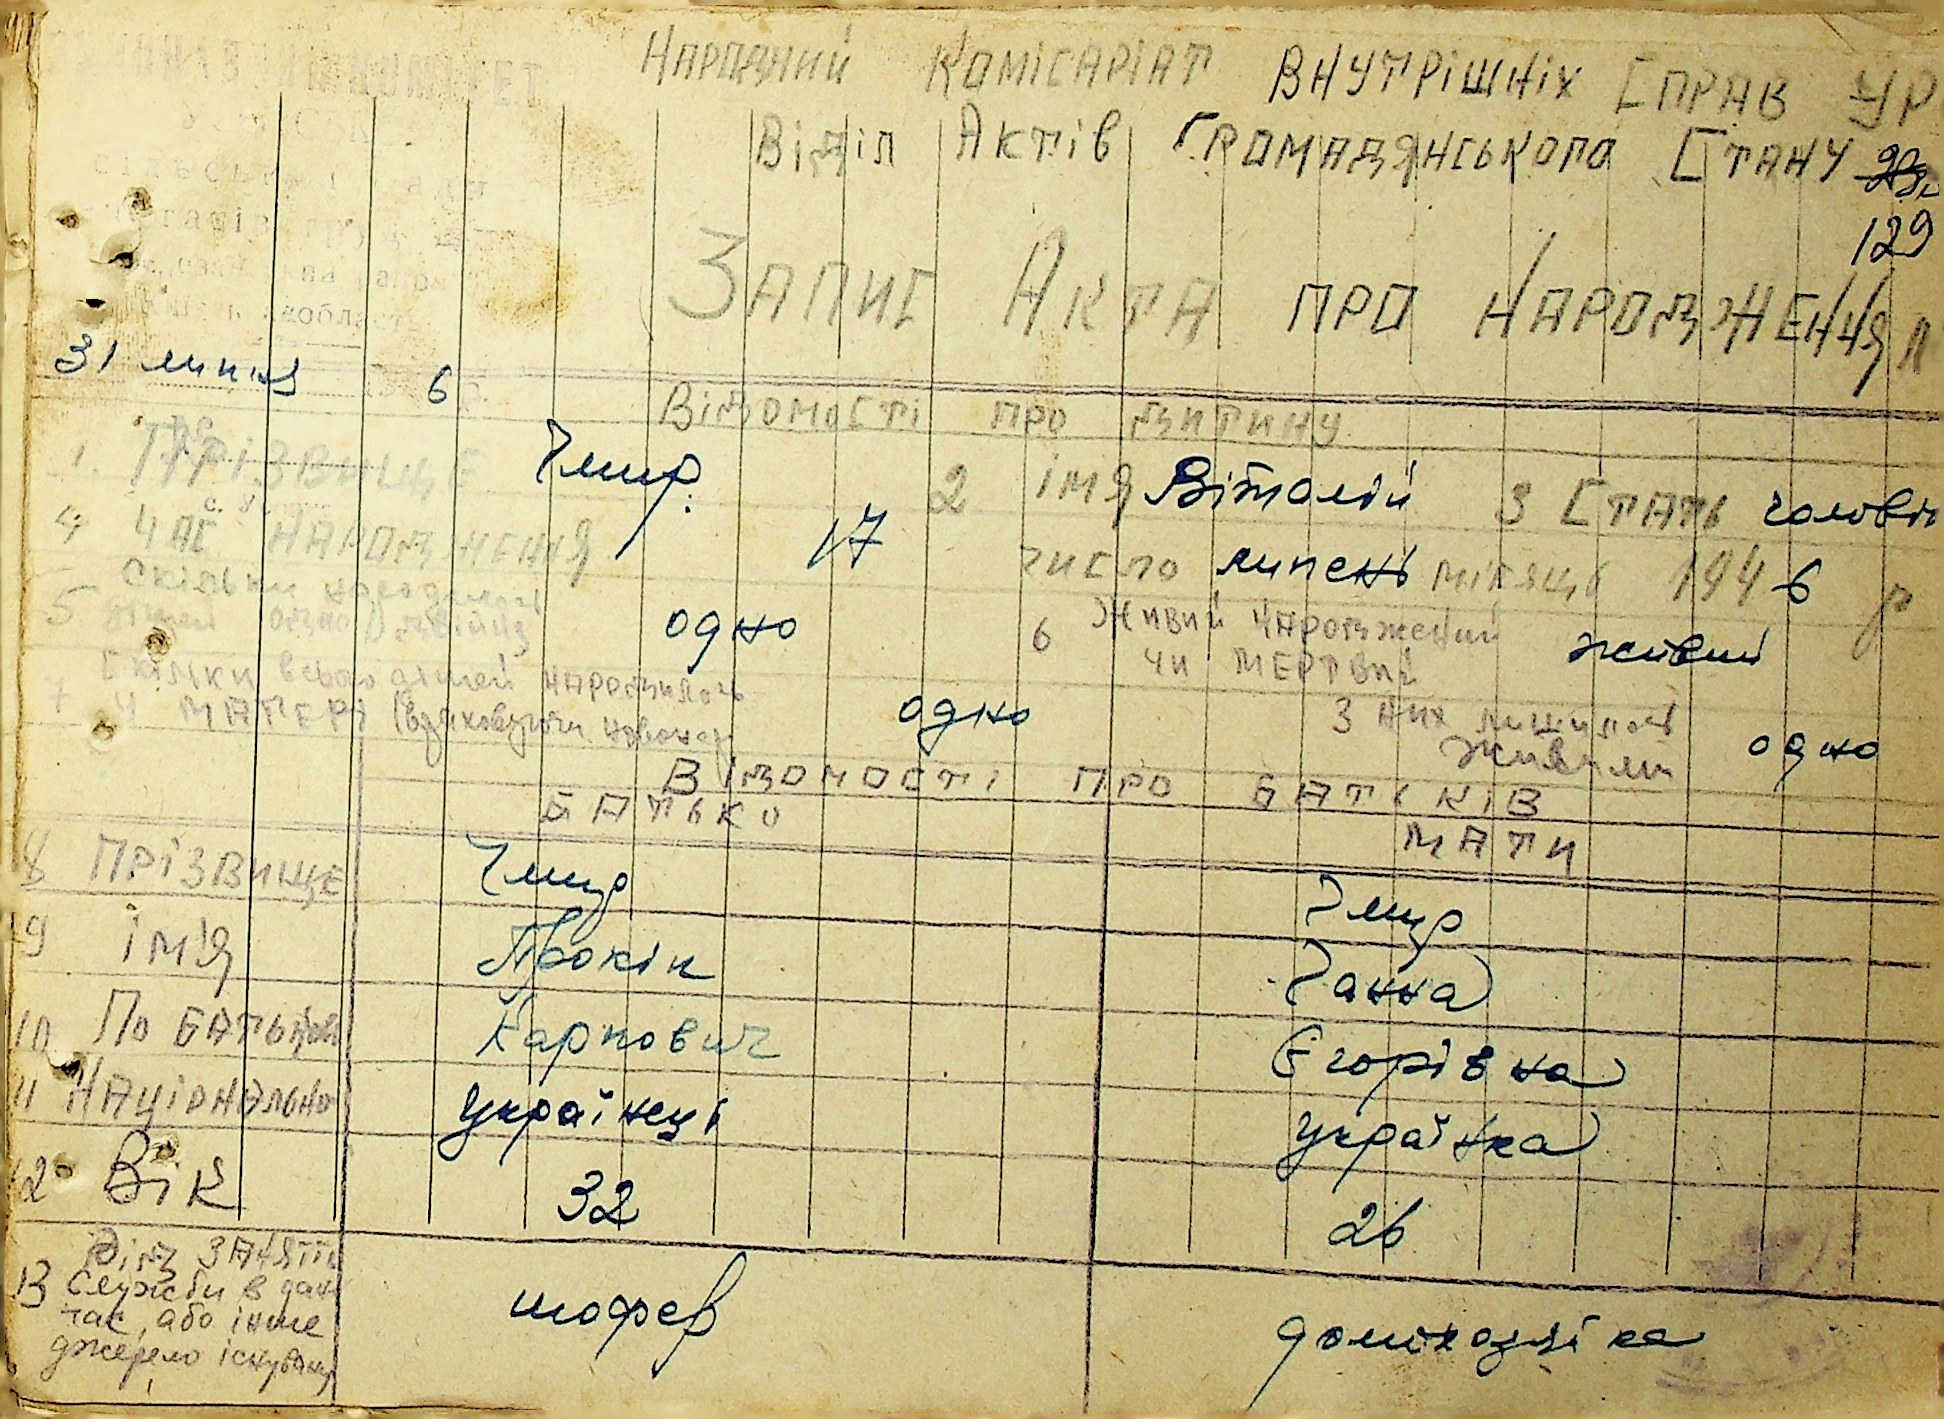 Народний Комісаріат Внутрішніх Справ УР
Відділ Актів Громадянського Стану
129
Запис Акта про народження
31 липня 6
Відомості про дитину
1. Прізвище Чмир 2 імя Віталій 3 Стать чолові
4 Час народження 17 число липень місяць 1946 р
5 Скільки народилось дітей одно 6 Живий народжений чи мертвий живий
7 Скільки всього дітей народилось у матері одно З них лишилось живими одно
Відомості про батьків
Батько Мати
8 Прізвище Чмир Чмир
9 імя Прокіп Ганна
10 По батькові Карпович Єгорівна
11 Національно українці українка
12 Вік 32 26
13 Від занять
Служби в дани
час, або інше
джерело існування
шофер домохазяїка